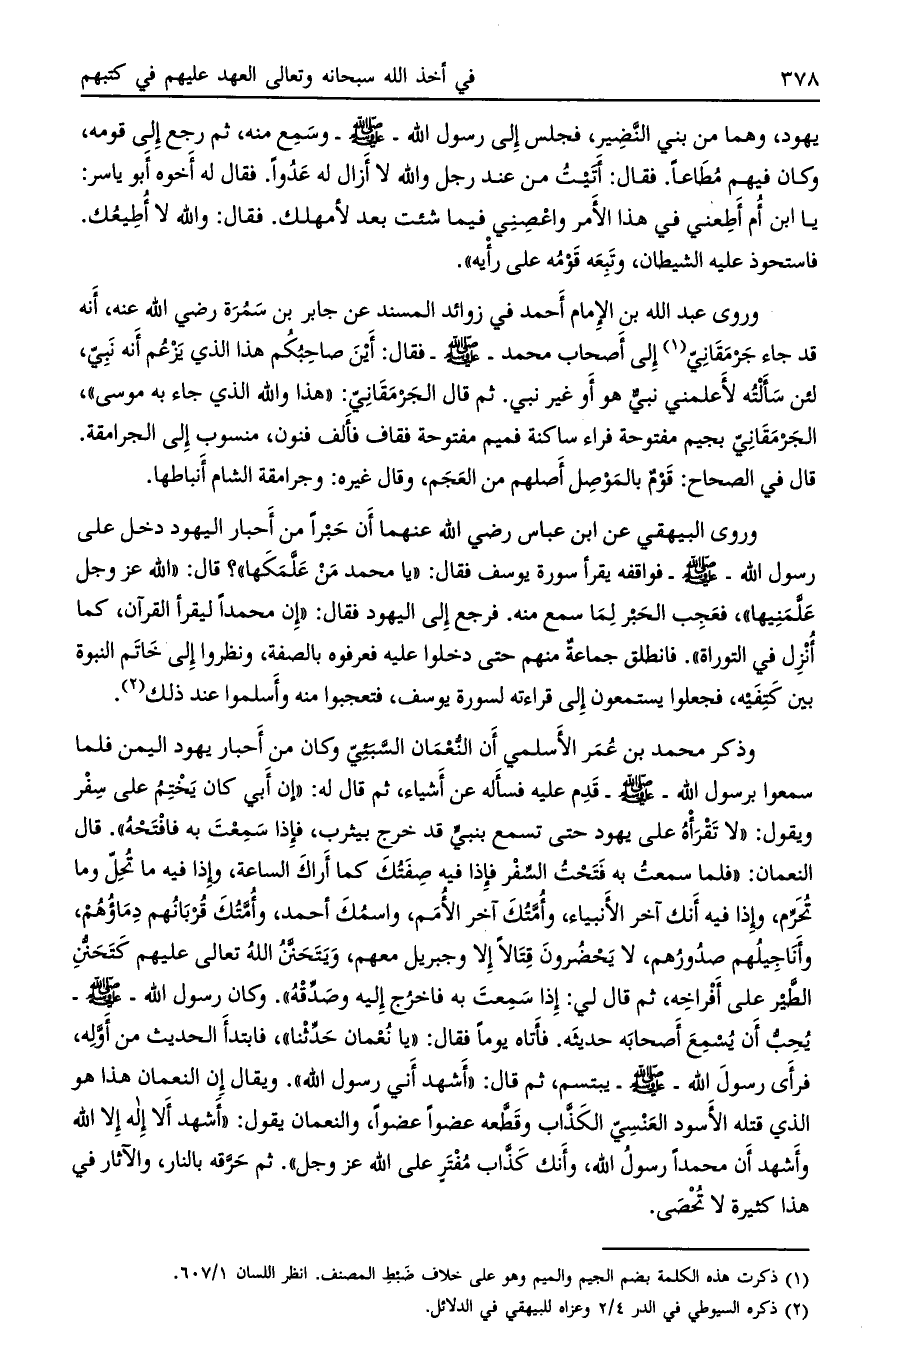 ٣٧٨ في أخذ الله سبحانه وتعالى العهد عليهم في كتبهم
يهود، وهما من بني النَّضِير، فجلس إلى رسول الله ـ ﷺ ـ وسَمِع منه، ثم رجع إلى قومه،
وكان فيهم مُطَاعاً. فقال: أَتَيْتُ من عند رجل والله لا أَزال له عَدُواً. فقال له أَخوه أَبو ياسر:
يا ابن أُم أَطِعني في هذا الأَمر واعْصِنِي فيما شئت بعد لأمهلك. فقال: والله لا أُطِيعُك.
فاستحوذ عليه الشيطان، وتَبِعَه قَوْمُه على رأْيه».
وروى عبد الله بن الإمام أَحمد في زوائد المسند عن جابر بن سَمُرَة رضي الله عنه، أَنه
قد جاء جَرْمَقَانِيّ(١) إلى أَصحاب محمد ـ ﷺ ـ فقال: أَيْنَ صاحِبُكُم هذا الذي يَزْعُم أَنه نَبِيّ،
لئن سَأَلْتُه لأَعلمني نبيٌّ هو أَو غير نبي. ثم قال الجَرْمَقَانِيّ: «هذا والله الذي جاء به موسى»،
الجَرْمَقَانِيّ بجيم مفتوحة فراء ساكنة فميم مفتوحة فقاف فأَلف فنون، منسوب إلى الجرامقة.
قال في الصحاح: قَوْمٌ بالمَوْصِل أَصلهم من العَجَم، وقال غيره: وجرامقة الشام أَنباطها.
وروى البيهقي عن ابن عباس رضي الله عنهما أَن حَبْراً من أَحبار اليهود دخل على
رسول الله ـ ﷺ ـ فوافقه يقرأ سورة يوسف فقال: «يا محمد مَنْ عَلَّمَكَها»؟ قال: «الله عز وجل
عَلَّمَنِيها»، فعَجِب الحَبْر لِمَا سمع منه. فرجع إلى اليهود فقال: «إن محمداً ليقرأ القرآن، كما
أُنْزِل في التوراة». فانطلق جماعةٌ منهم حتى دخلوا عليه فعرفوه بالصفة، ونظروا إلى خَاتَم النبوة
بين كَتِفَيْه، فجعلوا يستمعون إلى قراءته لسورة يوسف، فتعجبوا منه وأَسلموا عند ذلك(٢).
وذكر محمد بن عُمَر الأَسلمي أَن النُّعْمَان السَّبَئِيّ وكان من أَحبار يهود اليمن فلما
سمعوا برسول الله ـ ﷺ ـ قَدِم عليه فسأَله عن أَشياء، ثم قال له: «إن أَبي كان يَخْتِمُ على سِفْر
ويقول: «لا تَقْرَأْهُ على يهود حتى تسمع بنبيٍّ قد خرج بيثرب، فإذا سَمِعْتَ به فافْتَحْهُ». قال
النعمان: «فلما سمعتُ به فَتَحْتُ السِّفْر فإذا فيه صِفَتُكَ كما أَراكَ الساعة، وإذا فيه ما تُحِلّ وما
تُحَرِّم، وإذا فيه أنك آخر الأَنبياء، وأُمَّتُكَ آخر الأُمم، واسمُكَ أحمد، وأُمَّتُكَ قُرْبَانُهم دِمَاؤُهُمْ،
وأَنَاجِيلُهم صدُورُهم، لا يَحْضُرونَ قِتَالاً إلا وجبريل معهم، وَيَتَحَنَّنُ اللهُ تعالى عليهم كَتَحَنُّنِ
الطَّيْر على أَفْراخِه، ثم قال لي: إذا سَمِعتَ به فاخرُج إليه وصَدِّقْهُ». وكان رسول الله ـ ﷺ ـ
يُحِبُّ أَن يُسْمِعَ أَصحابَه حديثَه. فأَتاه يوماً فقال: «يا نُعْمان حَدِّثْنا»، فابتدأَ الحديث من أَوَّلِه،
فرأى رسولَ الله ـ ﷺ ـ يبتسم، ثم قال: «أَشهد أَني رسول الله». ويقال إن النعمان هذا هو
الذي قتله الأَسود العَنْسِيّ الكَذَّاب وقَطَّعه عضواً عضواً، والنعمان يقول: «أَشهد أَلا إلٰه إلا الله
وأَشهد أَن محمداً رسولُ الله، وأَنك كَذَّاب مُفْتَرٍ على الله عز وجل». ثم حَرَّقه بالنار، والآثار في
هذا كثيرة لا تُحْصَى.
(١) ذكرت هذه الكلمة بضم الجيم والميم وهو على خلاف ضَبْطِ المصنف. انظر اللسان ٦٠٧/١.
(٢) ذكره السيوطي في الدر ٢/٤ وعزاه للبيهقي في الدلائل.